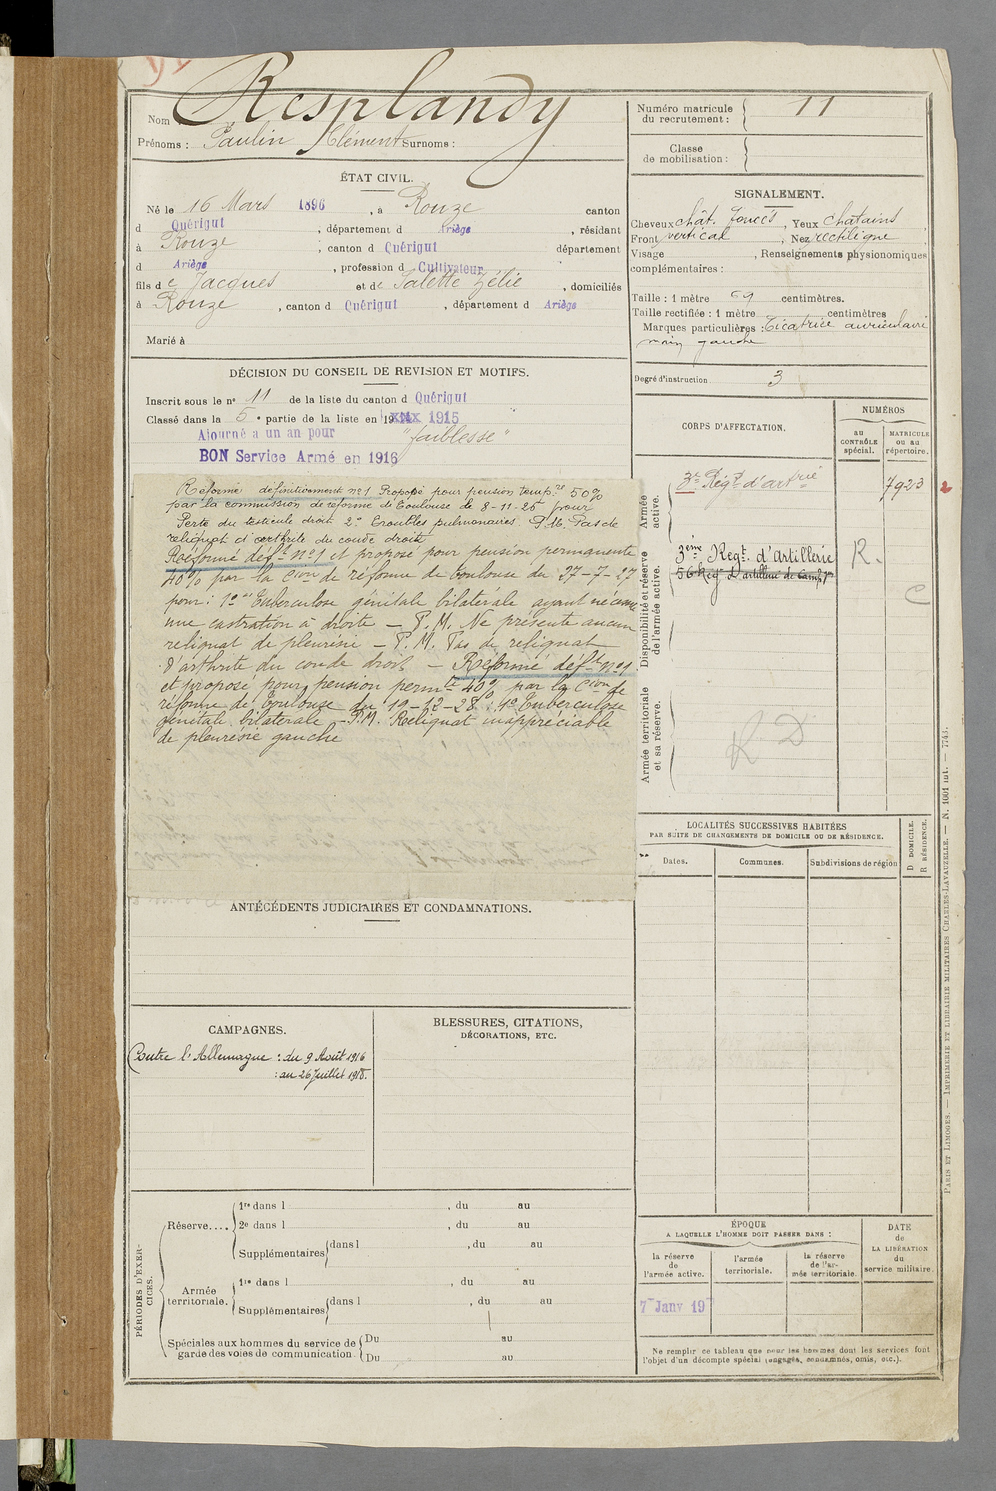 Nom : Resplandy
Prénoms : Paulin Clément Surnoms :
ÉTAT CIVIL.
Né le 16 Mars 1896, à Rouze canton
d Quérigut, département d Ariège, résidant
à Rouze, canton d Quérigut département
d Ariège, profession d Cultivateur
fils de Jacques et de Salette Zélie, domiciliés
à Rouze, canton d Quérigut, département d Ariège
Marié à
DÉCISION DU CONSEIL DE REVISION ET MOTIFS.
Inscrit sous le n° 11 de la liste du canton d Quérigut
Classé dans la 5e partie de la liste en 1915
Ajourné à un an pour "faiblesse"
BON Service Armé en 1916
Réformé définitivement n°1 Proposé pour pension temp.re 50%
par la commission de réforme de Toulouse du 8-11-25 pour
Perte du testicule droit 2° Troubles pulmonaires P.M. Pas de
reliquat d'arthrite du coude droit
Réformé déf.t n°1 et proposé pour pension permanente
40% par la Cion de réforme de Toulouse du 27-7-27
pour : 1° Tuberculose génitale bilatérale ayant nécessité
une castration à droite — P.M. Ne présente aucun
reliquat de pleurésie — P.M. Pas de reliquat
d'arthrite du coude droit — Réformé déf.t n°1
et proposé pour pension perm.te 40% par la Cion de
réforme de Toulouse du 19-12-28 : 1° Tuberculose
génitale bilatérale — P.M. Reliquat inappréciable
de pleurésie gauche
ANTÉCÉDENTS JUDICIAIRES ET CONDAMNATIONS.
CAMPAGNES.
Contre l'Allemagne : du 9 Août 1916
: au 26 Juillet 1918.
BLESSURES, CITATIONS,
DÉCORATIONS, ETC.
PÉRIODES D'EXERCICES.
Réserve....
1re dans l , du au
2e dans l , du au
Supplémentaires dans l , du au
Armée
territoriale.
1re dans l , du au
Supplémentaires dans l , du au
Spéciales aux hommes du service de
garde des voies de communication
Du au
Du au
Numéro matricule
du recrutement : 11
Classe
de mobilisation :
SIGNALEMENT.
Cheveux chât. foncés, Yeux chatains
Front vertical, Nez rectiligne
Visage , Renseignements physionomiques
complémentaires :
Taille : 1 mètre 69 centimètres.
Taille rectifiée : 1 mètre centimètres
Marques particulières : Cicatrice auriculaire
main gauche
Degré d'instruction 3
CORPS D'AFFECTATION.
NUMÉROS
au
CONTRÔLE
spécial.
MATRICULE
ou au
répertoire.
Armée
active.
3e Régt d'artrie 7923 2
Disponibilité et réserve
de l'armée active.
3ème Regt. d'Artillerie R.
56 Régt d'artillerie de Campgne
C
Armée territoriale
et sa réserve.
R.D
LOCALITÉS SUCCESSIVES HABITÉES
PAR SUITE DE CHANGEMENTS DE DOMICILE OU DE RÉSIDENCE.
Dates.
Communes.
Subdivisions de région
D DOMICILE.
R RÉSIDENCE.
ÉPOQUE
A LAQUELLE L'HOMME DOIT PASSER DANS :
DATE
de
LA LIBÉRATION
du
service militaire.
la réserve
de
l'armée active.
l'armée
territoriale.
la réserve
de l'ar-
mée territoriale.
7 Janv 19
Ne remplir ce tableau que pour les hommes dont les services font
l'objet d'un décompte spécial (engagés, condamnés, omis, etc.).
PARIS ET LIMOGES. — IMPRIMERIE ET LIBRAIRIE MILITAIRES CHARLES-LAVAUZELLE. — N. 1001 int. — 7743.